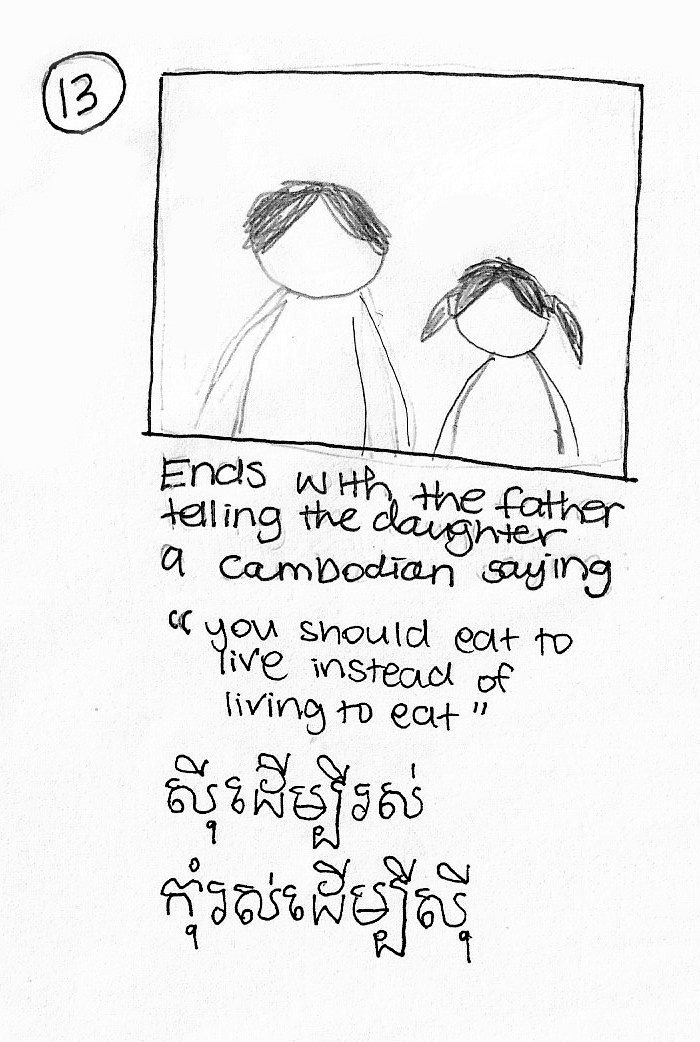 13
Ends with the father
telling the daughter
a cambodian saying
"you should eat to
live instead of
living to eat"
ស៊ីដើម្បីរស់
កុំរស់ដើម្បីស៊ី